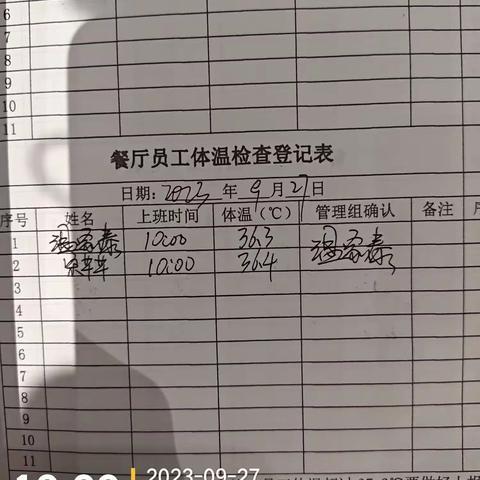 6
7
8
9
10
11
餐厅员工体温检查登记表
日期: 2023 年 9 月 27 日
序号 姓名 上班时间 体温（℃） 管理组确认 备注 序
1 10:00 36.3
2 10:00 36.4
3
4
5
6
7
8
9
10
11
2023-09-27